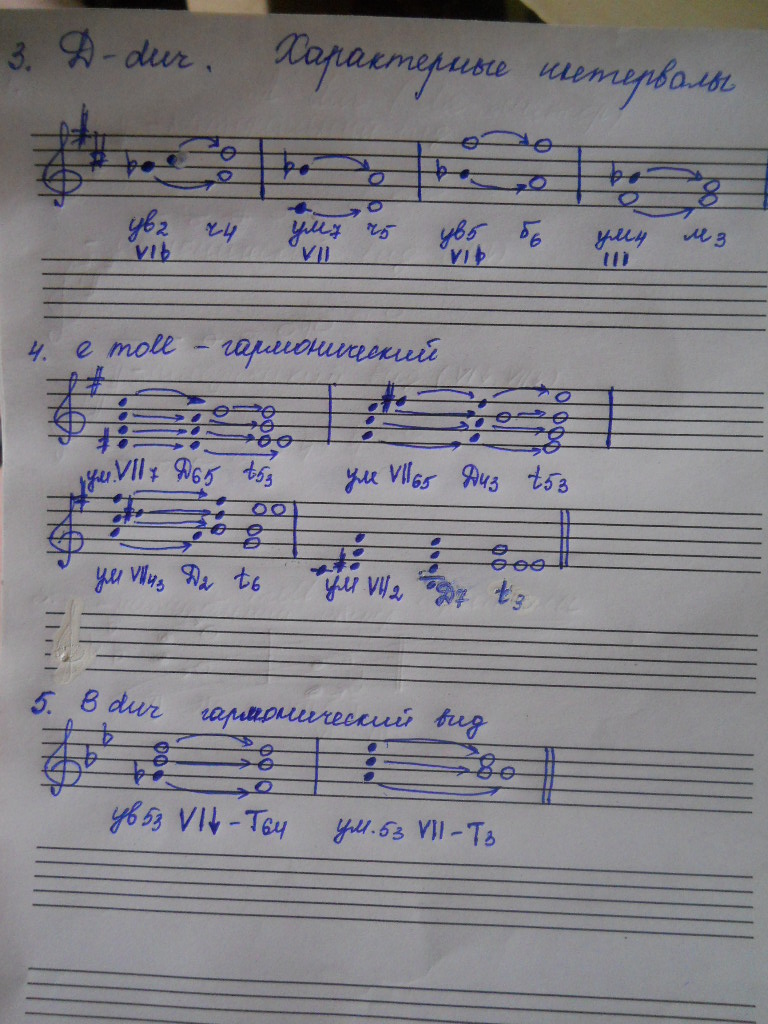 3. D-dur. Характерные интервалы
ув2 ч4 ум7 ч5 ув5 б6 ум4 м3
VI♭ VII VI♭ III
4. e moll – гармонический
ум.VII7 D65 t53 ум VII65 D43 t53
ум VII43 D2 t6 ум VII2 D7 t3
5. B dur гармонический вид
ув53 VI↓ – T64 ум.53 VII – T3